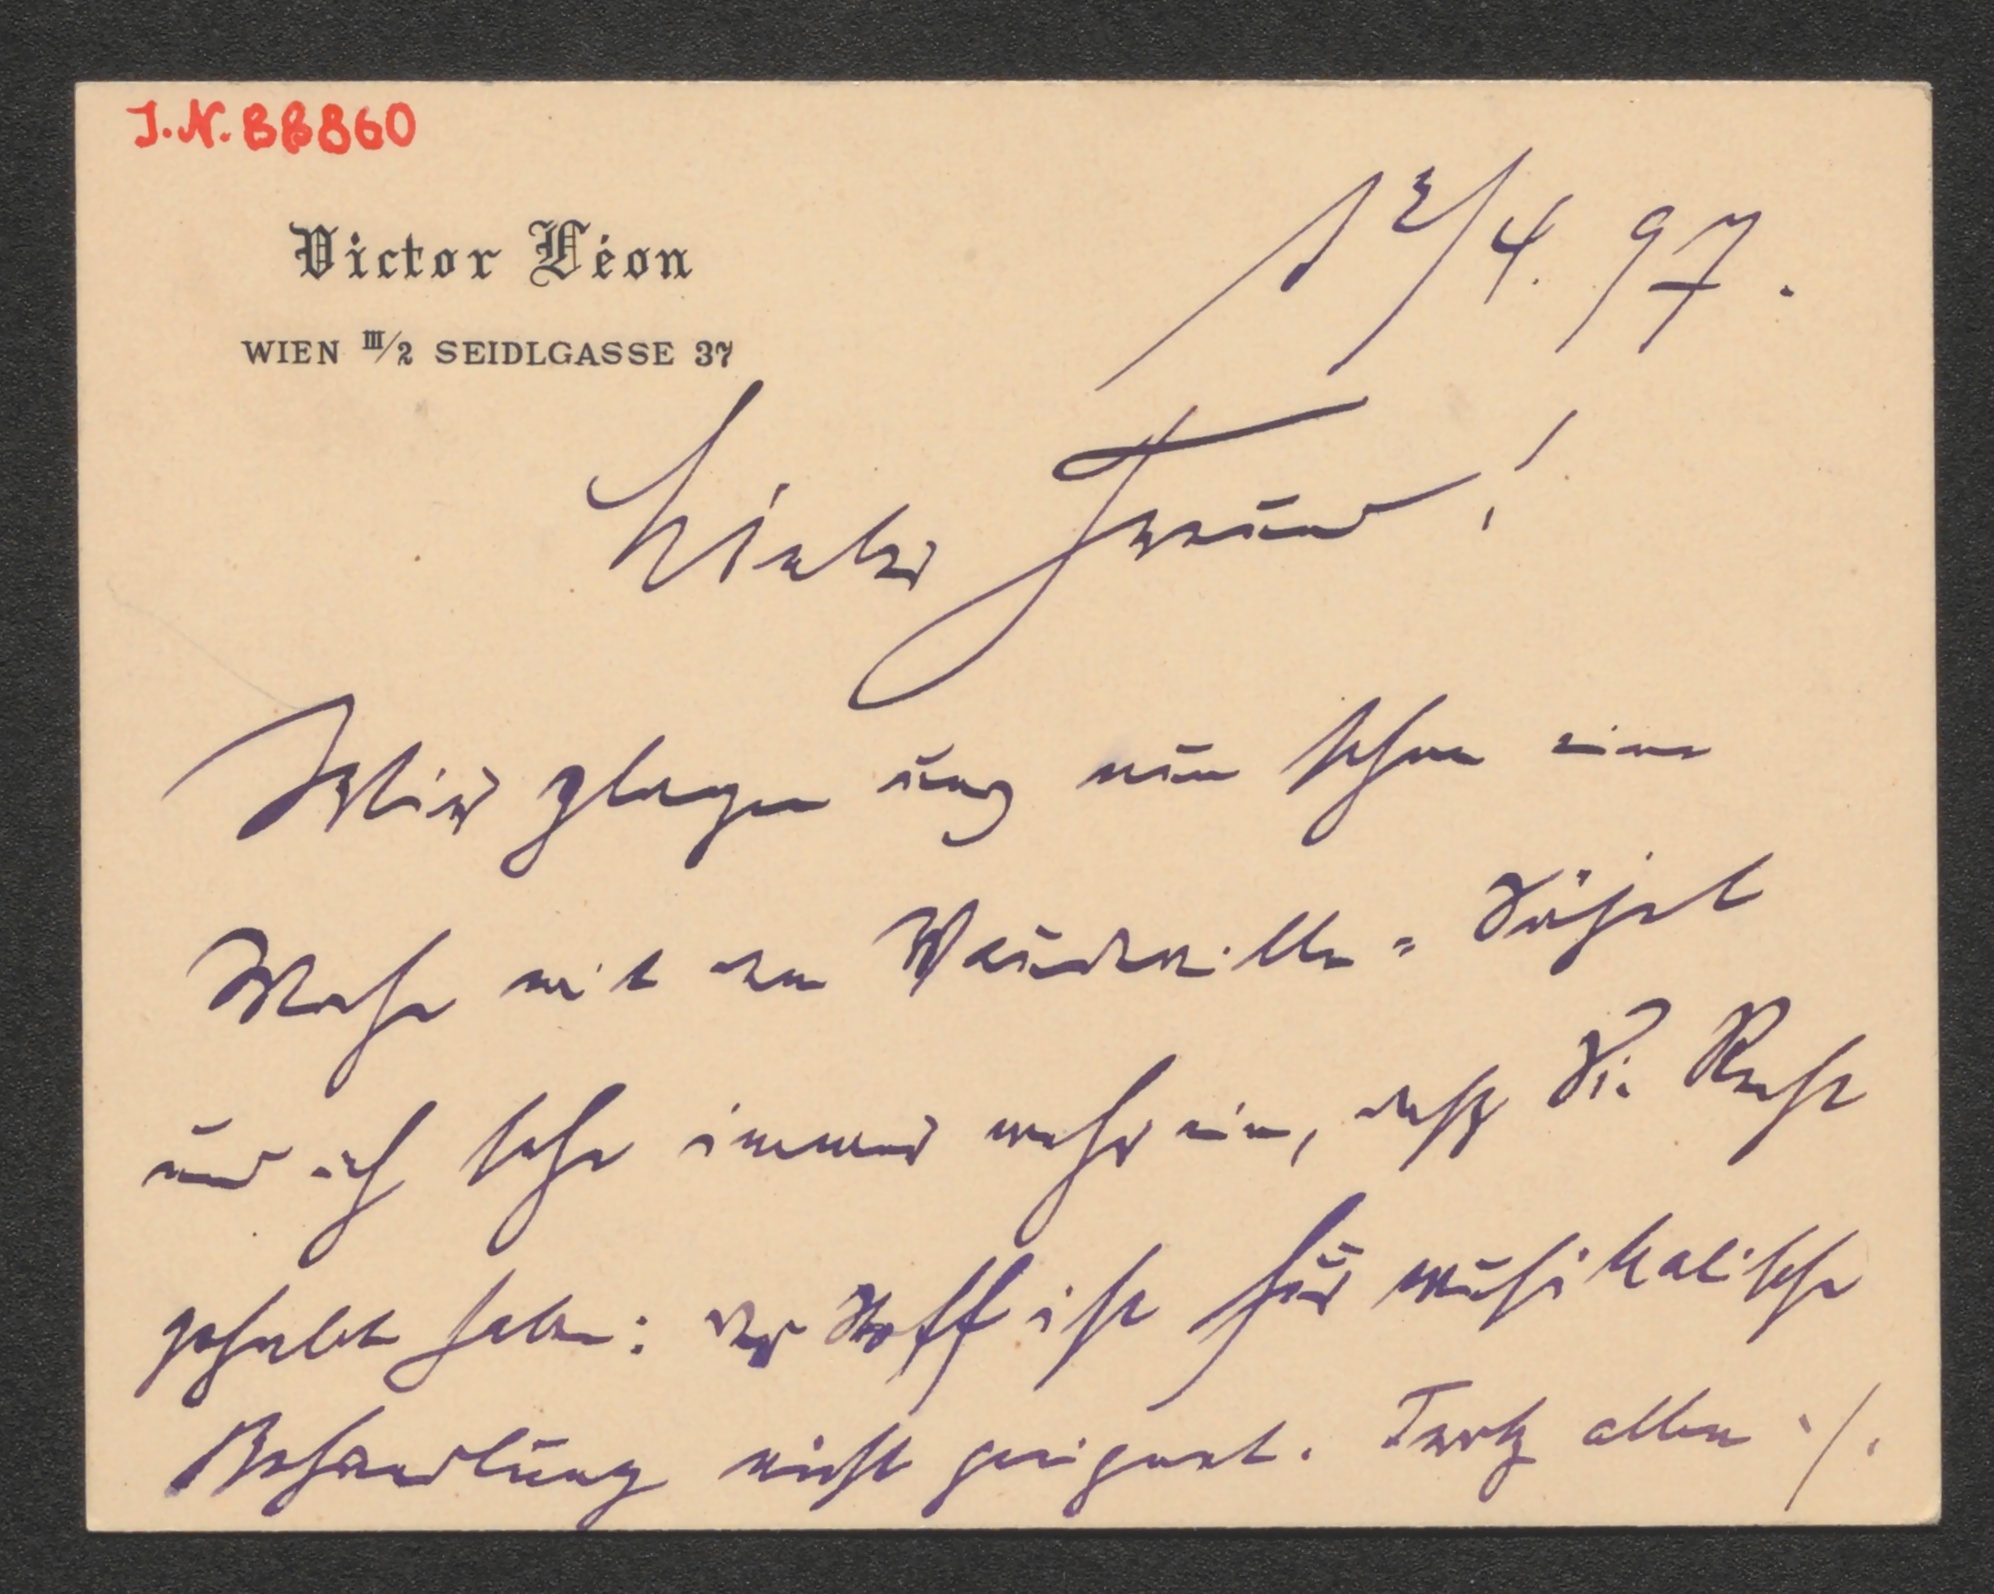 J.N. 88860
Victor Léon
WIEN III/2 SEIDLGASSE 37
12/4. 97.
Lieber Freund!
Wir plagen uns nun schon eine
Woche mit dem Vaudeville-Sujet
und ich sehe immer mehr ein, dass Sie Recht
gehabt haben: der Stoff ist für musikalische
Behandlung nicht geeignet. Trotz allem ·/.